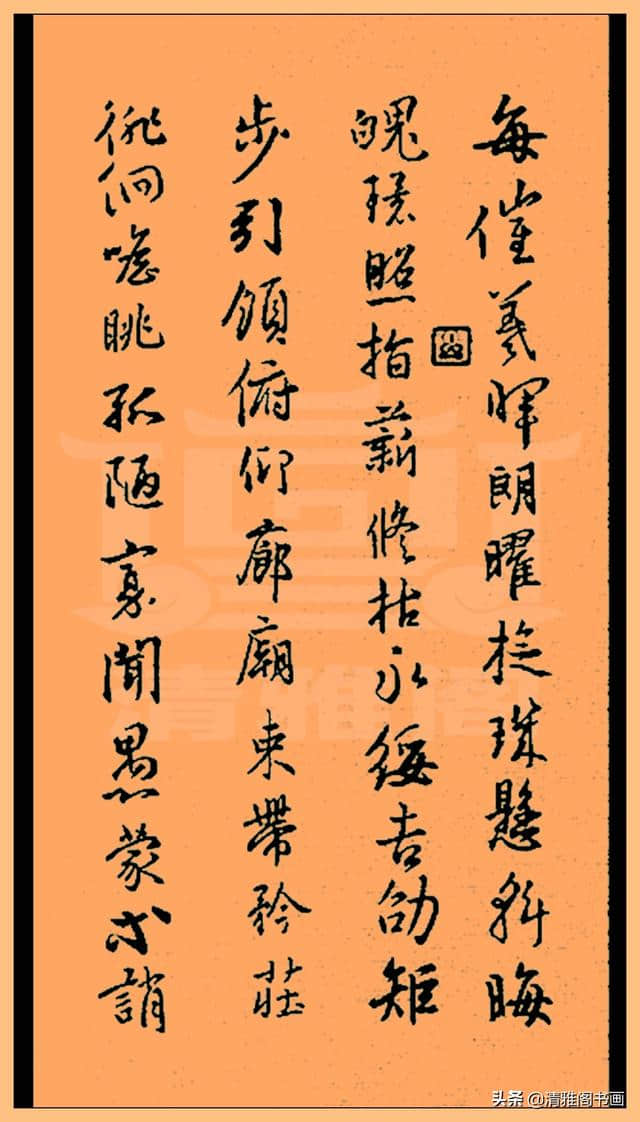 每催羲暉朗曜旋珠懸斡晦
魄環照指薪修枯永綏吉劭矩
步引領俯仰廊廟束帶矜莊
徘徊瞻眺孤陋寡聞愚蒙等誚
清雅阁
头条 @清雅阁书画